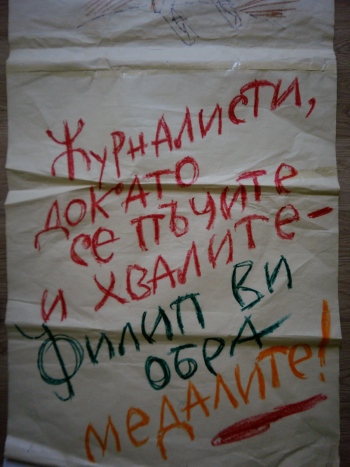 ЖУРНАЛИСТИ,
ДОКАТО
СЕ ПЪЧИТЕ
И ХВАЛИТЕ-
ФИЛИП ВИ
ОБРА
МЕДАЛИТЕ!